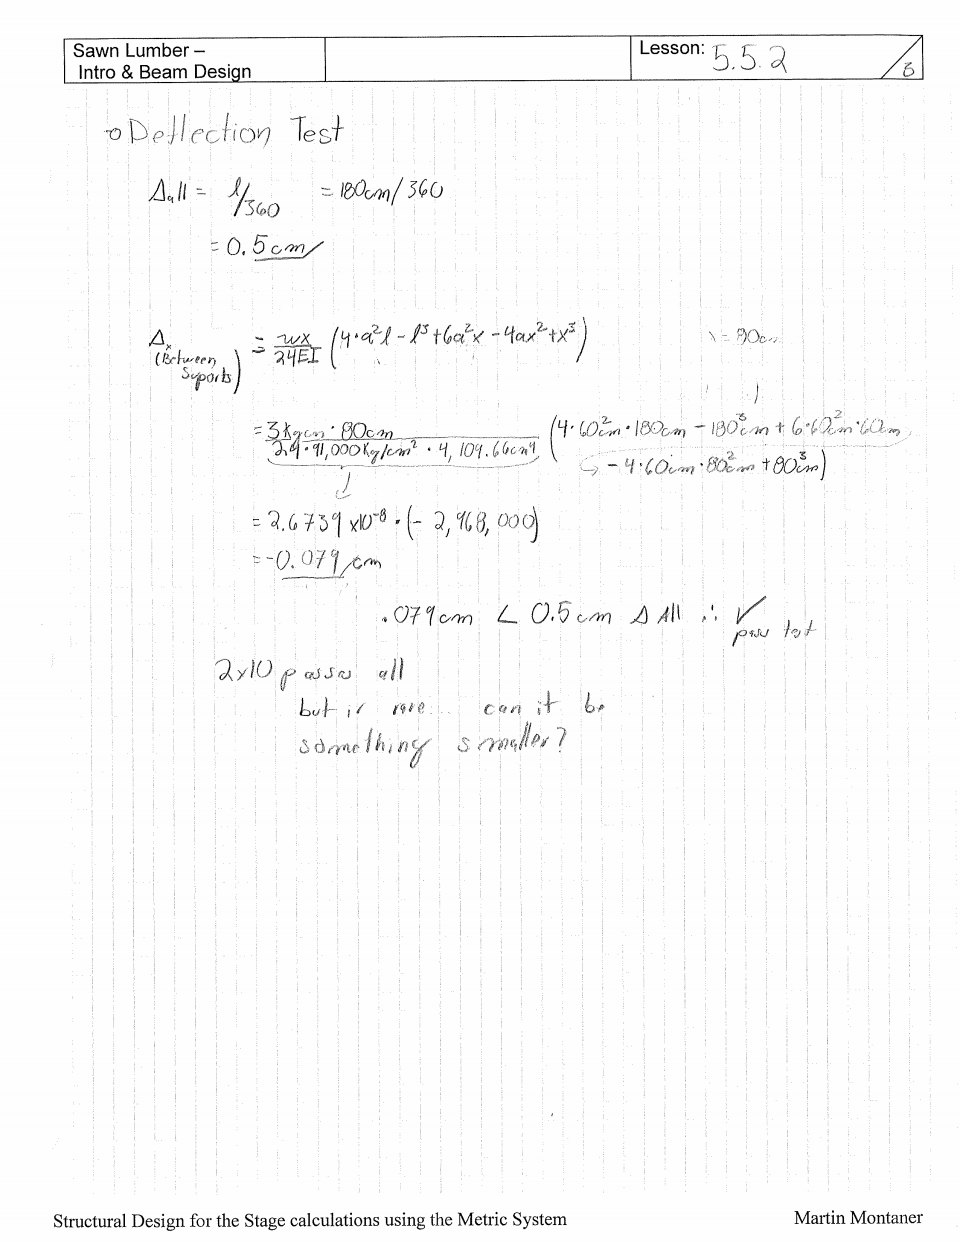 Sawn Lumber –
Intro & Beam Design
Lesson: 5.5.2
Deflection Test
Δall = l/360 = 180cm/360
= 0.5cm
Δx = wx/24EI (4·a²l - l³ + 6a²x - 4ax² + x³) = 80cm
(Between
Suports)
= 3Kgcm · 80cm / 24·91,000Kg/cm² · 4,109.66cm⁴ (4·60²cm·180cm - 180³cm + 6·60²cm·60cm
- 4·60cm·80²cm + 80³cm)
= 2.6739 x10⁻⁸ · (- 2,968,000)
= -0.079 cm
.079cm < 0.5cm Δ All ∴ ✓
pass test
2x10 passes all
but is rare... can it be
something smaller?
Structural Design for the Stage calculations using the Metric System
Martin Montaner